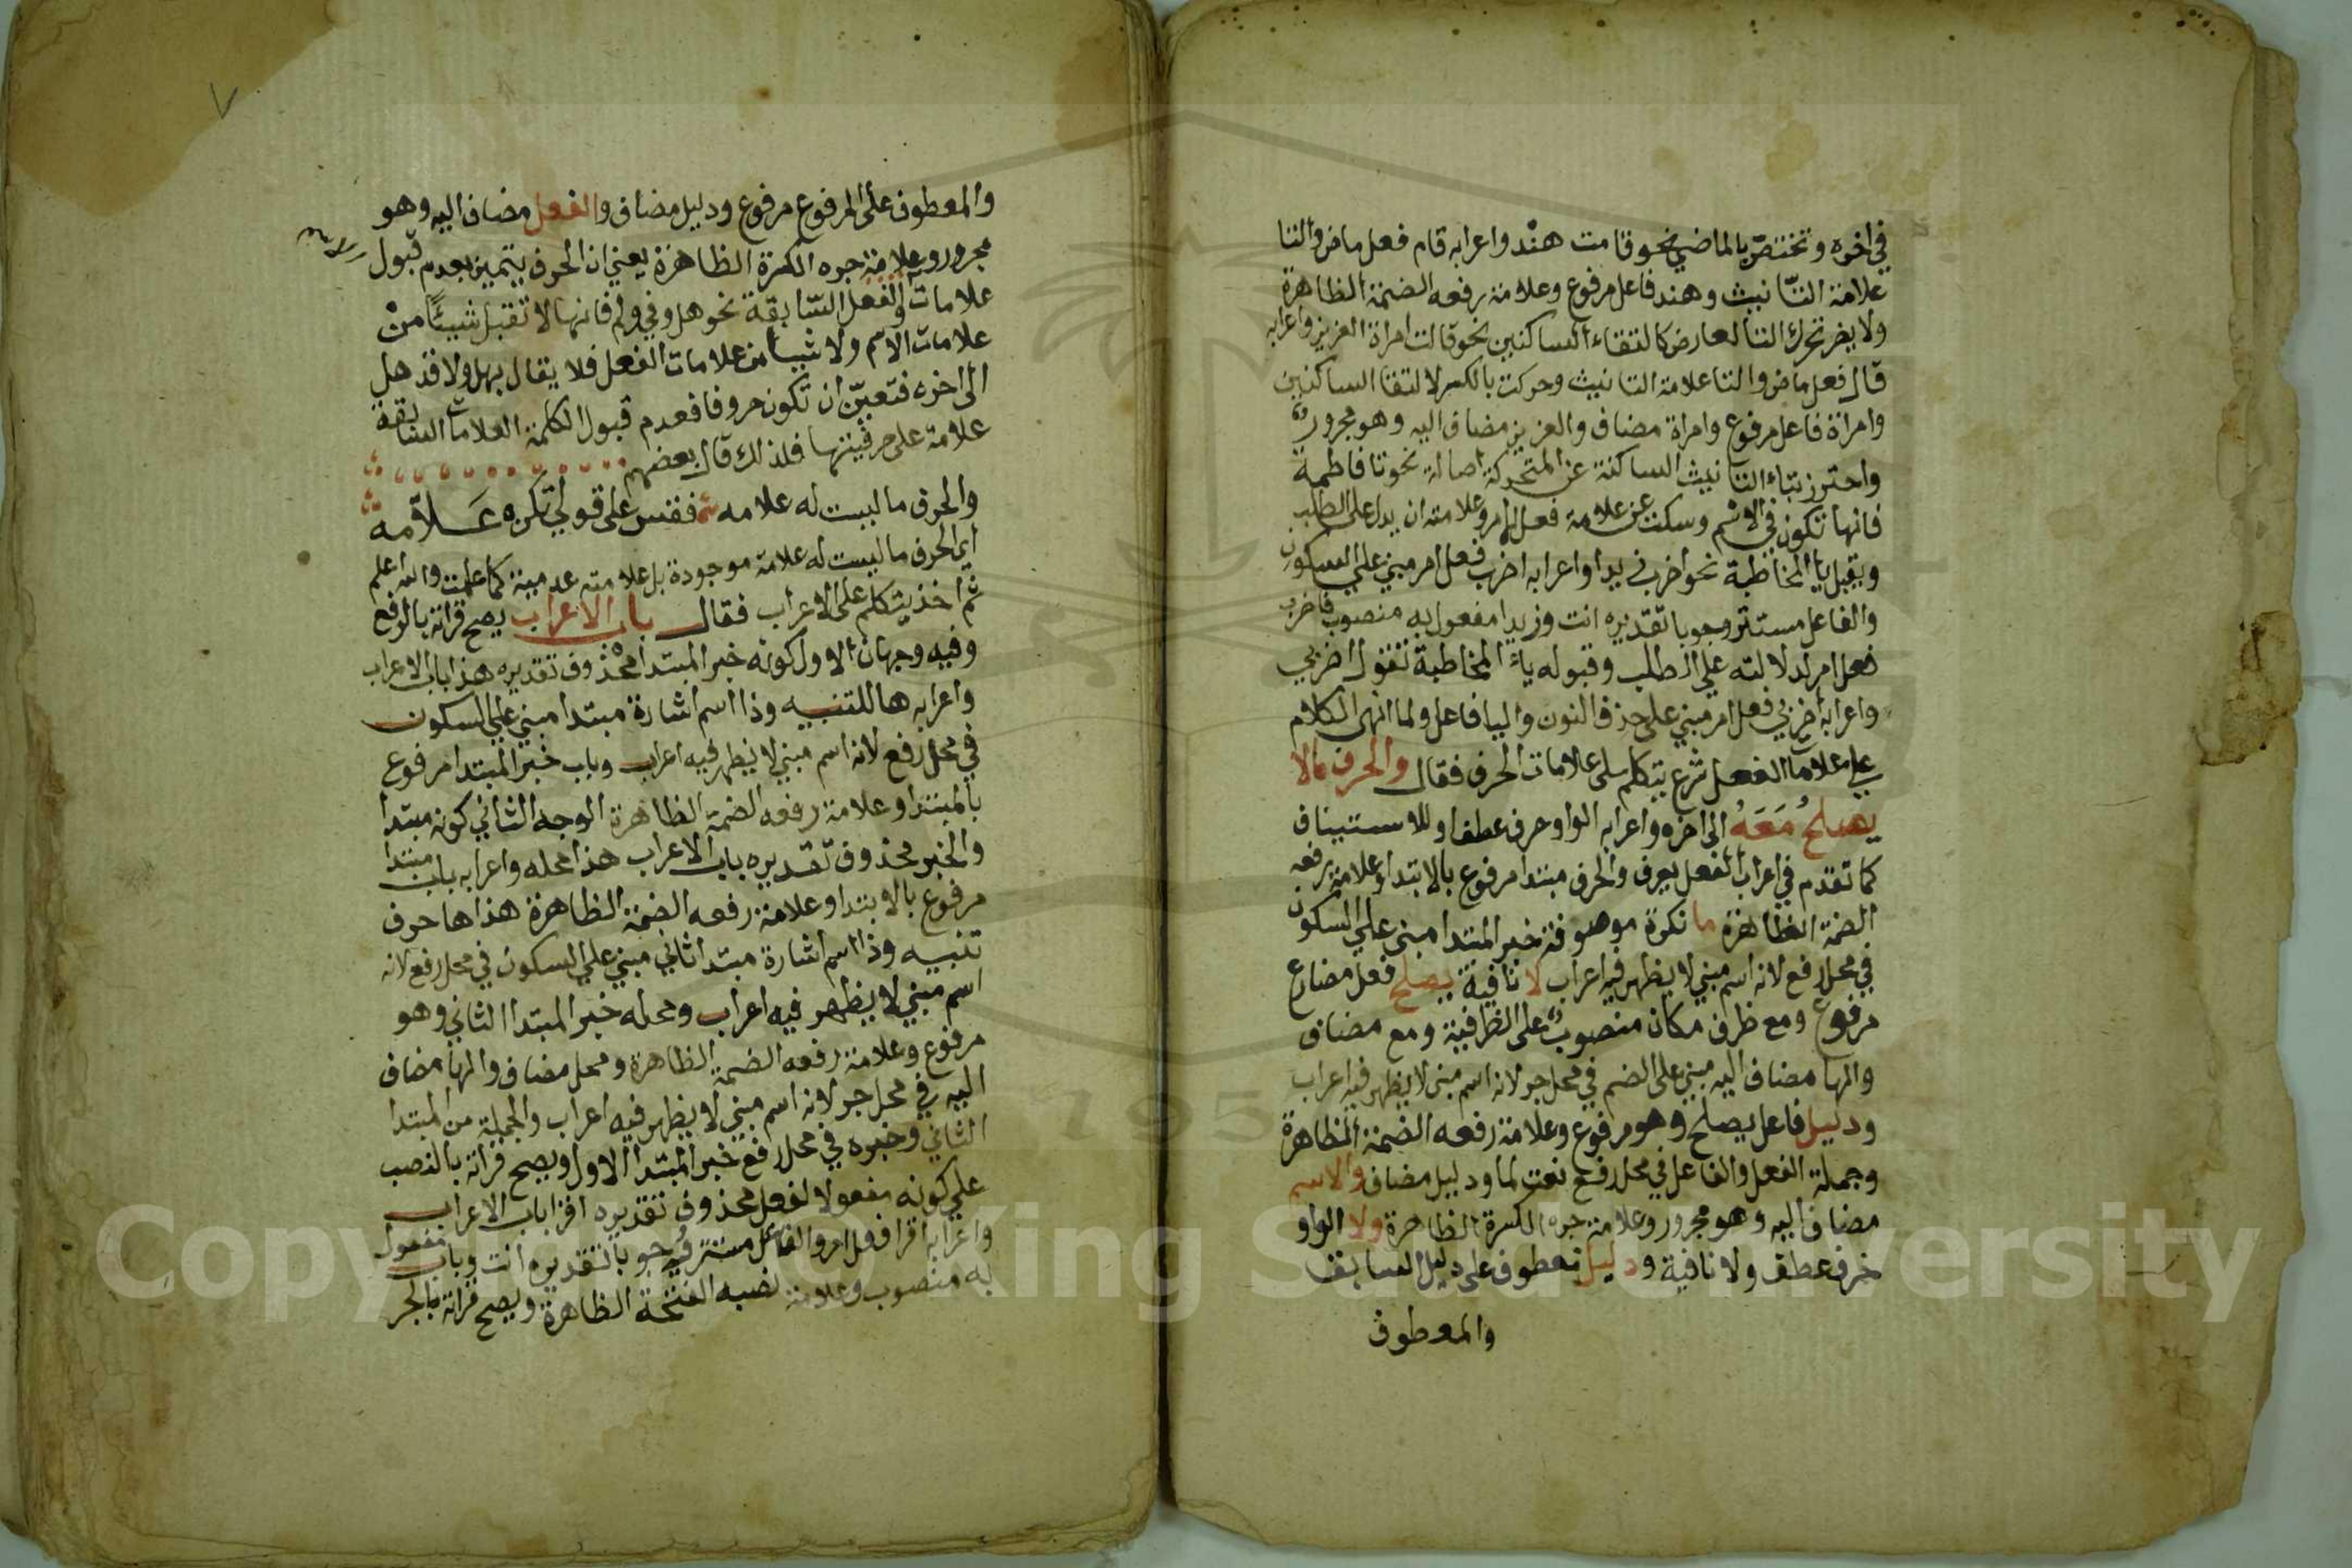 في اخره وتختص بالماضي نحو قامت هند واعرابه قام فعل ماض والتا
علامة التّانيث وهند فاعل مرفوع وعلامة رفعه الضمة الظاهرة
ولا يضر تحرك التا لعارض كالتقاء الساكنين نحو قالت امراة العزيز واعرابه
قال فعل ماض والتا علامة التانيث وحركت بالكسر لالتقا الساكنين
وامراة فاعل مرفوع وامراة مضاف والعزيز مضاف اليه وهو مجرور
واحترز بتاء التانيث الساكنة عن المتحركة اصالة نحو تا فاطمة
فانها تكون في الاسم وسكت عن علامة فعل الامر وعلامته ان يدل على الطلب
ويقبل يا المخاطبة نحو اضرب زيدا واعرابه اضرب فعل امر مبني على السكون
والفاعل مستتر وجوبا تقديره انت وزيدا مفعول به منصوب فاضرب
فعل امر لدلالته على الطلب وقبوله ياء المخاطبة تقول اضربي
واعرابه اضربي فعل امر مبني على حذف النون واليا فاعل ولما انهى الكلام
على علامات الفعل شرع يتكلم على علامات الحرف فقال والحرف مالا
يصلح مَعَهُ الى اخره واعرابه الواو حرف عطف او للاستيناف
كما تقدم في اعراب الفعل يعرف والحرف مبتدا مرفوع بالابتدا وعلامة رفعه
الضمة الظاهرة ما نكرة موصوفة خبر المبتدا مبني على السكون
في محل رفع لانه اسم مبني لا يظهر فيه اعراب لا نافية يصلح فعل مضارع
مرفوع ومع ظرف مكان منصوب على الظرفية ومع مضاف
والها مضاف اليه مبني على الضم في محل جر لانه اسم مبني لا يظهر فيه اعراب
ودليل فاعل يصلح وهو مرفوع وعلامة رفعه الضمة الظاهرة
وجملة الفعل والفاعل في محل رفع نعت لما ودليل مضاف والاسم
مضاف اليه وهو مجرور وعلامة جره الكسرة الظاهرة ولا الواو
حرف عطف ولا نافية ودليل معطوف على دليل السابق
والمعطوف
والمعطوف على المرفوع مرفوع ودليل مضاف والفعل مضاف اليه وهو
مجرور وعلامة جره الكسرة الظاهرة يعني ان الحرف يتميز بعدم قبول
علامات والفعل السّابقة نحو هل وفي ولم فانها لا تقبل شيئًا من
علامات الاسم ولا شيا من علامات الفعل فلا يقال بهل ولا قد هل
الى اخره فتعيّن ان تكون حروفا فعدم قبول الكلمة العلامات السابقة
علامة على حرفيتها فلذلك قال بعضهم
والحرف ما ليست له علامه فقس على قولي تكن عَلاّمه
اي الحرف ما ليست له علامة موجودة بل علامته عدمية كما علمت والله اعلم
ثم اخذ يتكلم على الاعراب فقال باب الاعراب يصح قراته بالرفع
وفيه وجهان الاول كونه خبر المبتدا محذوف تقديره هذا باب الاعراب
واعرابه ها للتنبيه وذا اسم اشارة مبتدا مبني على السكون
في محل رفع لانه اسم مبني لا يظهر فيه اعراب وباب خبر المبتدا مرفوع
بالمبتدا وعلامة رفعه الضمة الظاهرة الوجه الثاني كونه مبتدا
والخبر محذوف تقديره باب الاعراب هذا محله واعرابه باب مبتدا
مرفوع بالابتدا وعلامة رفعه الضمة الظاهرة هذا ها حرف
تنبيه وذا اسم اشارة مبتدا ثاني مبني على السكون في محل رفع لانه
اسم مبني لا يظهر فيه اعراب ومحله خبر المبتدا الثاني وهو
مرفوع وعلامة رفعه الضمة الظاهرة ومحل مضاف والها مضاف
اليه في محل جر لانه اسم مبني لا يظهر فيه اعراب والجملة من المبتدا
الثاني وخبره في محل رفع خبر المبتدا الاول ويصح قراته بالنصب
على كونه مفعولا لفعل محذوف تقديره اقرا باب الاعراب
واعرابه اقرا فعل امر والفاعل مستتر فيه وجوبا تقديره انت وباب مفعول
به منصوب وعلامة نصبه الفتحة الظاهرة ويصح قراته بالجر
Copyright © King Saud University